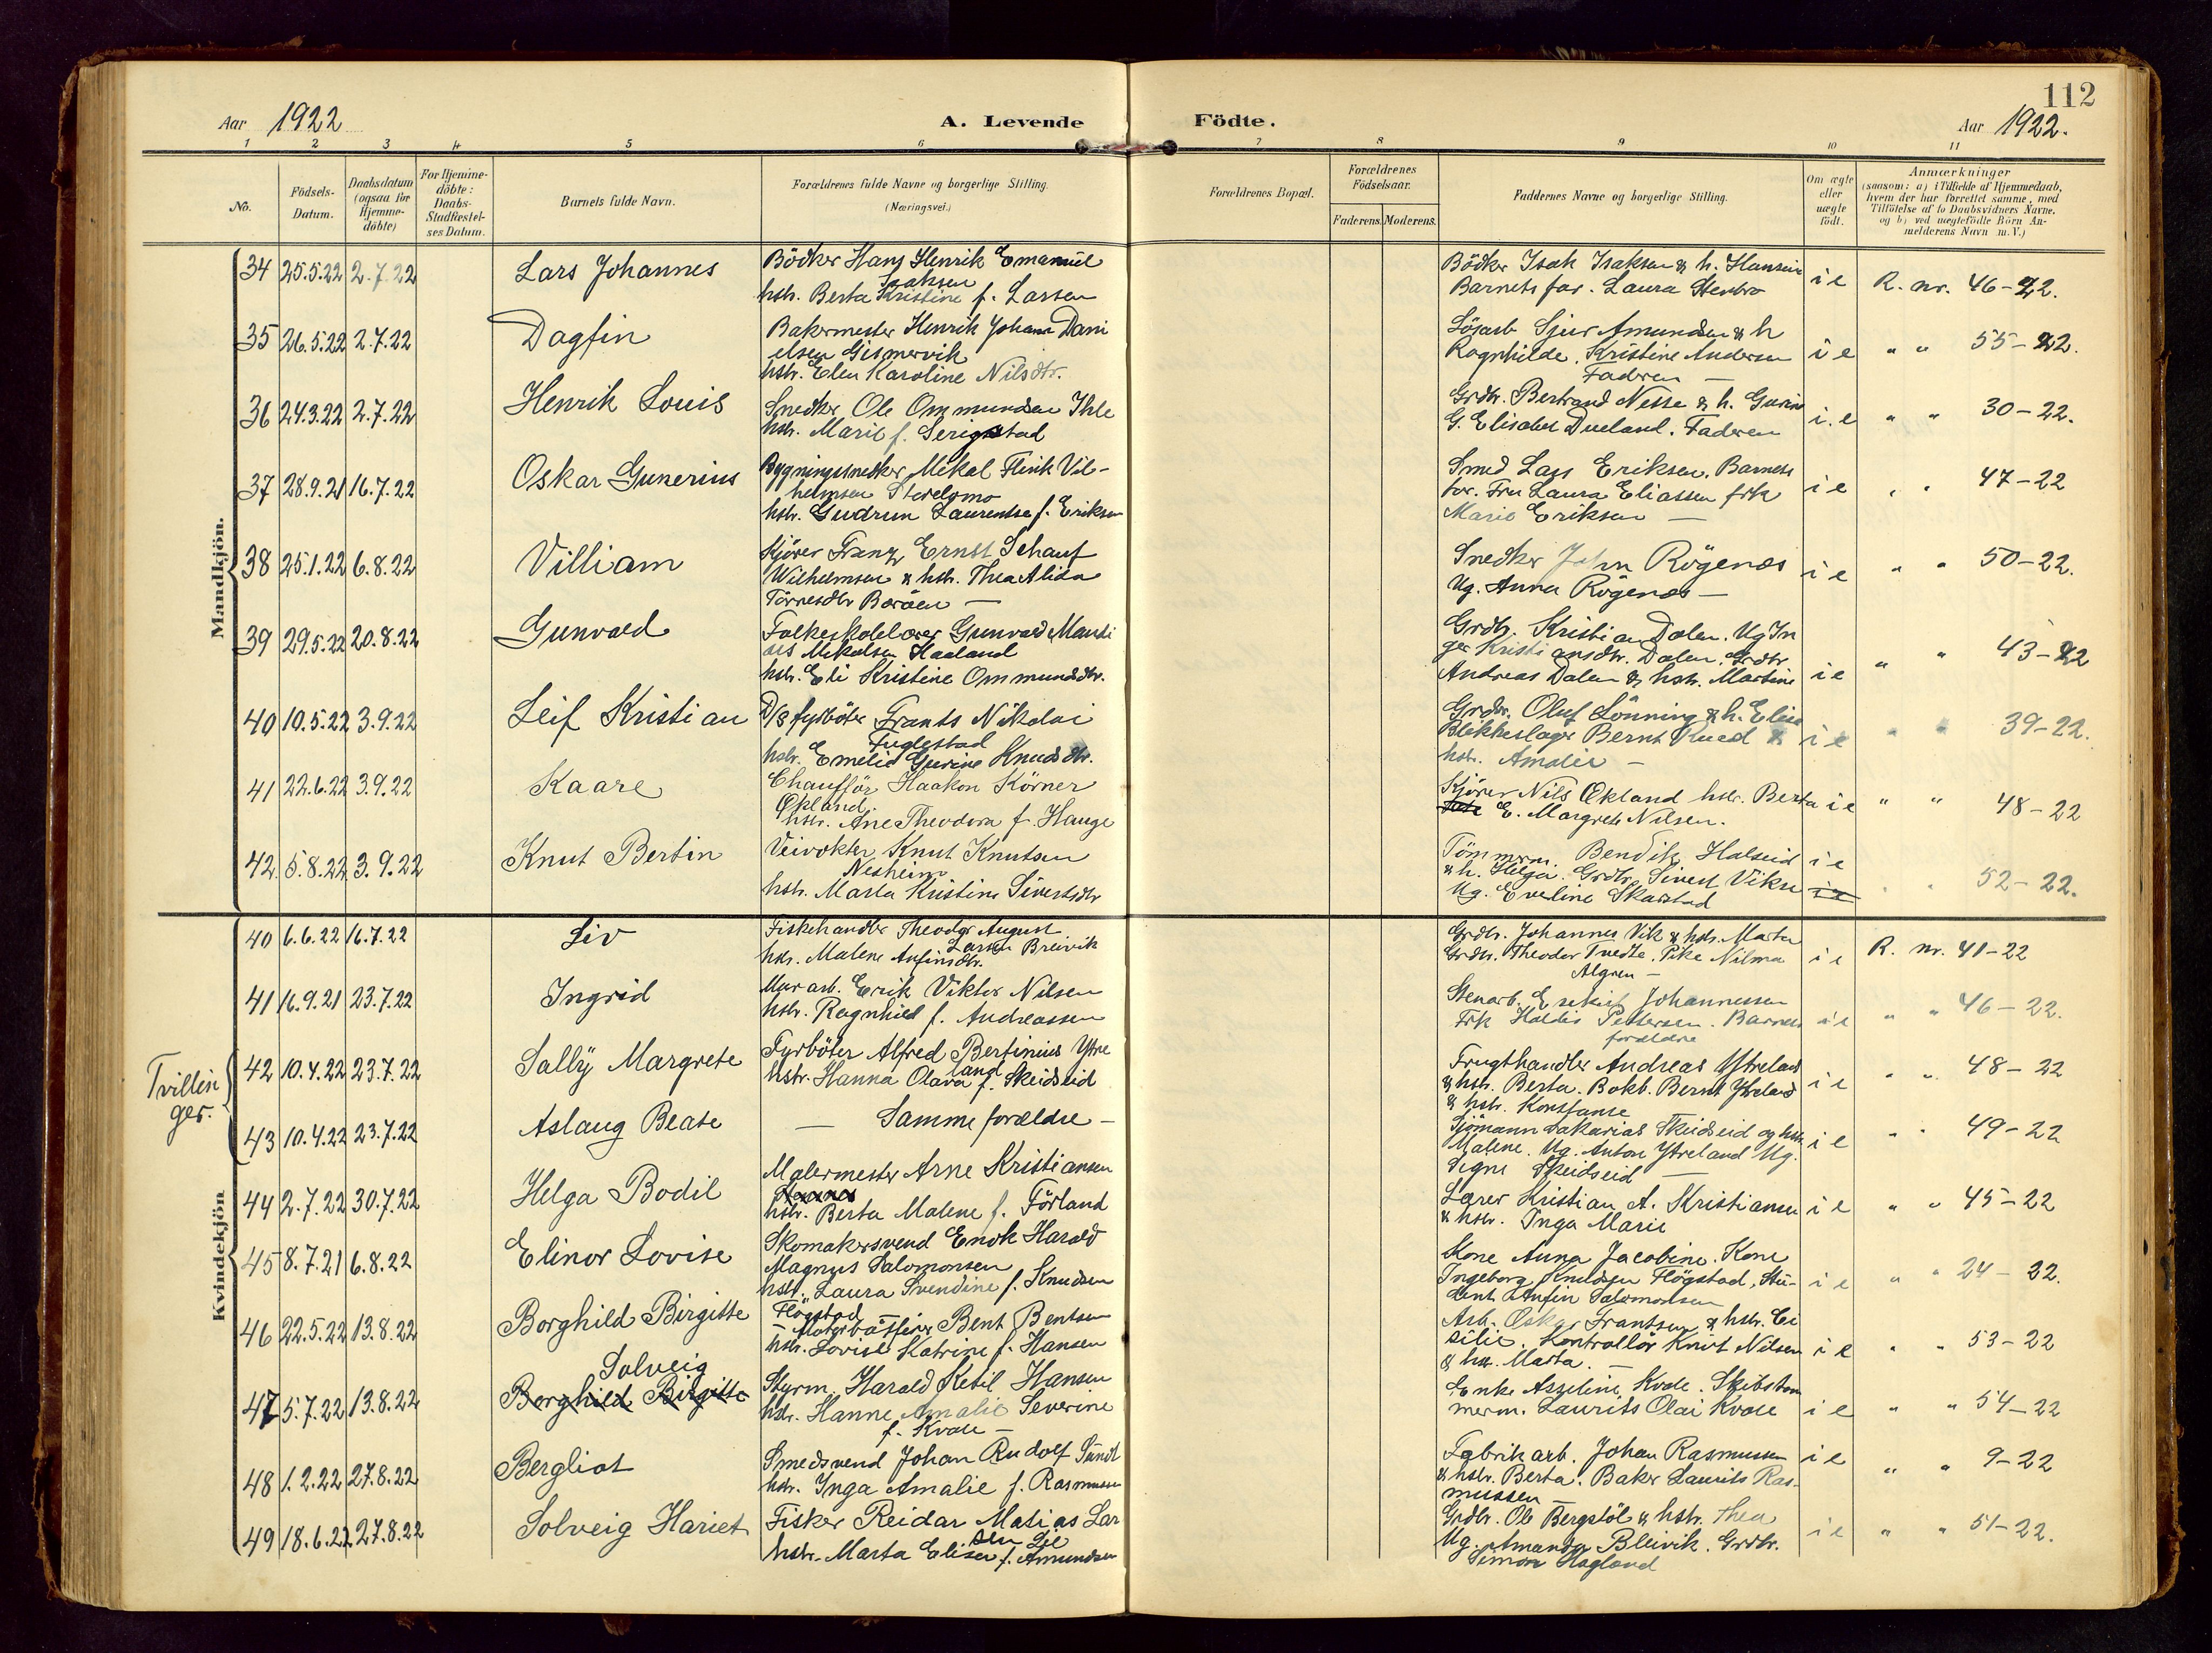 112
Aar 1922
A. Levende Födte.
Aar 1922.
1 2 3 4 5 6 7 8 9 10 11
No.
Födsels-
Datum.
Daabsdatum
(ogsaa for
Hjemme-
döbte)
For Hjemme-
döbte:
Daabs-
Stadfæstel-
ses Datum.
Barnets fulde Navn.
Forældrenes fulde Navne og borgerlige Stilling.
(Næringsvei.)
Forældrenes Bopæl.
Forældrenes
Födselsaar.
Faderens. Moderens.
Faddernes Navne og borgerlige Stilling.
Om ægte
eller
uægte
födt.
Anmærkninger
(saasom: a) i Tilfælde af Hjemmedaab,
hvem der har forrettet samme, med
Tilföielse af to Daabsvidners Navne,
og b) ved uægtefödte Börn An-
melderens Navn m. V.)
Mandkjön.
34 25.5.22 2.7.22 Lars Johannes
Bödker Hans Henrik Emanuel
Isaksen
hstr. Berta Kristine f. Larsen
Bödker Isak Isaksen & h.
Barnets far. Laura Stenbro
i e R. nr. 46-22.
35 26.5.22 2.7.22 Dagfin
Bakermester Henrik Johan Dani
elsen Gismervik
hstr. Elen Karoline Nilsdtr.
Löjarb Sjur Amundsen & h
Ragnhilde. Kristine Andersen
Faderen —
i e " " 55-22.
36 24.3.22 2.7.22 Henrik Louis
Snedker Ole Ommundsen Ihle
hstr. Marie f. Serigstad
Grdbr. Bertrand Nesse & h. Gurine
G. Elisabet Dueland. Faderen
i. e " " 30-22.
37 28.9.21 16.7.22 Oskar Gunerius
Bygningssnedker Mikal Flink Vil-
helmsen
hstr. Gudrun Laurentse f. Eriksen
Smed Lars Eriksen. Barnets
far. Fru Laura Eliassen frk
Marie Eriksen —
i e " " 47-22
38 25.1.22 6.8.22 Villiam
Kjörer Franz Ernst Schauf
Wilhelmsen & hstr. Thea Alida
Törresdtr Boröen —
Snedker John Rögenæs
Ug. Anna Rögenæs —
i e " " 50-22.
39 29.5.22 20.8.22 Gunvald
Folkeskolelærer Gunvald Mauri
ius Mikalsen Haaland
hstr. Eli Kristine Ommundsdtr.
Grdbr. Kristian Dalen. Ug In
ger Kristiansdtr. Dalen. Grdbr.
Andreas Dalen & hstr. Martine
i e " " 43-22
40 10.5.22 3.9.22 Leif Kristian
D/S fyrböter Frants Nikolai
Fuglestad
hstr. Emelie Gurine Knudsdtr.
Grdbr. Oluf Lönning & h. Elise
Blikkeslager Bernt Rued &
hstr. Amalie —
i e " " 39-22.
41 22.6.22 3.9.22 Kaare
Chafför Haakon Körner
Økland.
hstr. Ane Theodora f. Hauge
Kjörer Nils Økland hstr. Berta
E. Margrete Nilsen.
i e " " 48-22
42. 5.8.22 3.9.22 Knut Bertin
Veivokter Knut Knutsen
Nesheim
hstr. Marta Kristine Sivertsdtr
Tömmerm. Bendik Halseid
& h. Helga. Grdbr. Sivert Vikse
Ug. Eveline Skarstad
i e " " 52-22.
Kvindekjön
40 6.6.22 16.7.22 Liv
Fiskehandler Theodor August
Larsen Breivik
hstr. Malene Anfinsdtr.
Grdbr. Johannes Vik & hstr. Marta
Grdbr. Theodor Tvedte. Pike Nilma
Algren —
i e R. nr. 41-22
41 16.9.21 23.7.22 Ingrid
Mur arb. Erik Viktor Nilsen
hstr. Ragnhild f. Andreassen
Stenarb. Esekiel Johannessen
Frk Haldis Pettersen. Barnets
forældre
i e " " 46-22.
Tvillin
ger.
42 10.4.22 23.7.22 Sally Margrete
Fyrböter Alfred Bertinius Ytre
land
hstr. Hanna Olava f. Skeidseid
Frugthandler Andreas Ytreland
& hstr. Berta. Bokb. Bernt Ytreland
& hstr. Konstanse
i e " " 48-22
43 10.4.22 23.7.22 Aslaug Beate
— Samme forældre —
Sjömann Sakarias Skeidseid og hstr.
Malene. Ug. Anton Ytreland Ug.
Signe Skeidseid —
i e " " 49-22
44 2.7.22 30.7.22 Helga Bodil
Malermester Arne Kristiansen
hstr. Berta Malene f. Förland
Lærer Kristian A. Kristiansen
& hstr. Inga Marie
i e " " 45-22
45 8.7.21 6.8.22 Elinor Lovise
Skomakersvend Enok Harald
Magnus Salomonsen
hstr. Laura Svendine f. Knudsen
Flögstad
Kone Anna Jacobine. Kone
Ingeborg Knudsen Flögstad, Stu-
dent Anfin Salomonsen
i e " " 24-22.
46 22.5.22 13.8.22 Borghild Birgitte
— Motorbåtförer Bent Bentsen
hstr. Lovise Katrine f. Hansen
Arb. Oskar Frantsen & hstr. Ce
silie. Kontrollör Knut Nilsen
& hstr. Marta. —
i e " " 53-22
47 5.7.22 13.8.22 Solveig
Borghild Birgitte
Styrm. Harald Ketil Hansen
hstr. Hanne Amalie Severine
f. Kvale —
Enke Asseline Kvale. Skibstöm
merm. Laurits Olai Kvale
i e " " 54-22
48 1.2.22 27.8.22 Bergliot
Smedsvend Johan Rudolf Sundt
hstr. Inga Amalie f. Rasmussen
Fabrik arb. Johan Rasmussen
& hstr. Berta. Baker Laurits Ras-
mussen —
i e " " 9-22
49 18.6.22 27.8.22 Solveig Hariet
Fisker Reidar Matias Lar
sen Lie
hstr. Marta Elisa f. Amundsen
Grdbr. Ole Bergstöl & hstr. Thea
Ug. Amanda Bleivik. Grdbr.
Simon Hagland
i e " " 51-22.